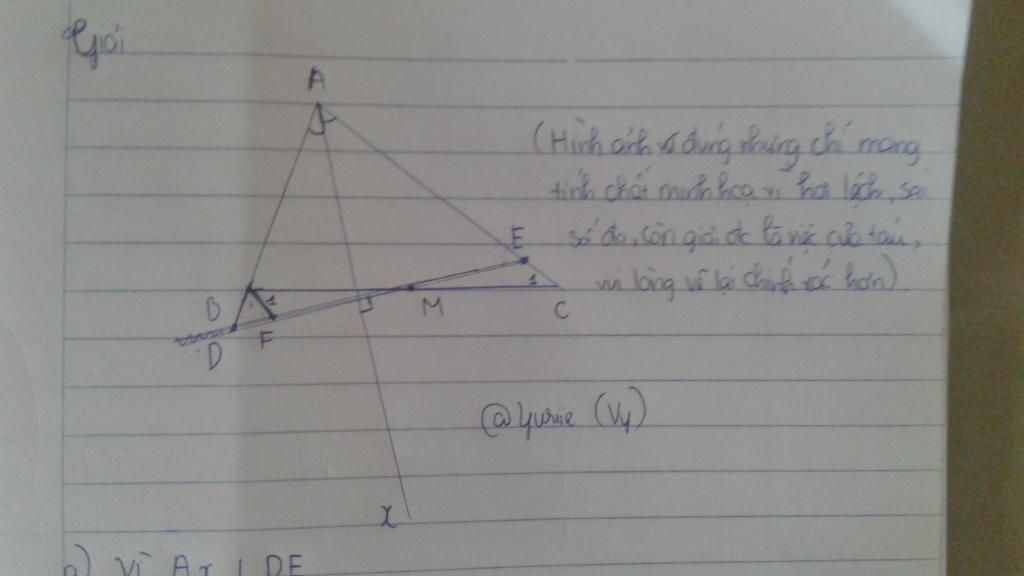 Giải
A
(Hình ảnh vẽ đúng nhưng chỉ mang
tính chất minh hoạ vì hơi lệch, sai
E
số đo, còn giải đc là việc của tau,
vui lòng vẽ lại chính xác hơn).
1
B
1
M
C
F
D
@Yurie (Vy)
x
a) Vì Ax ⊥ DE